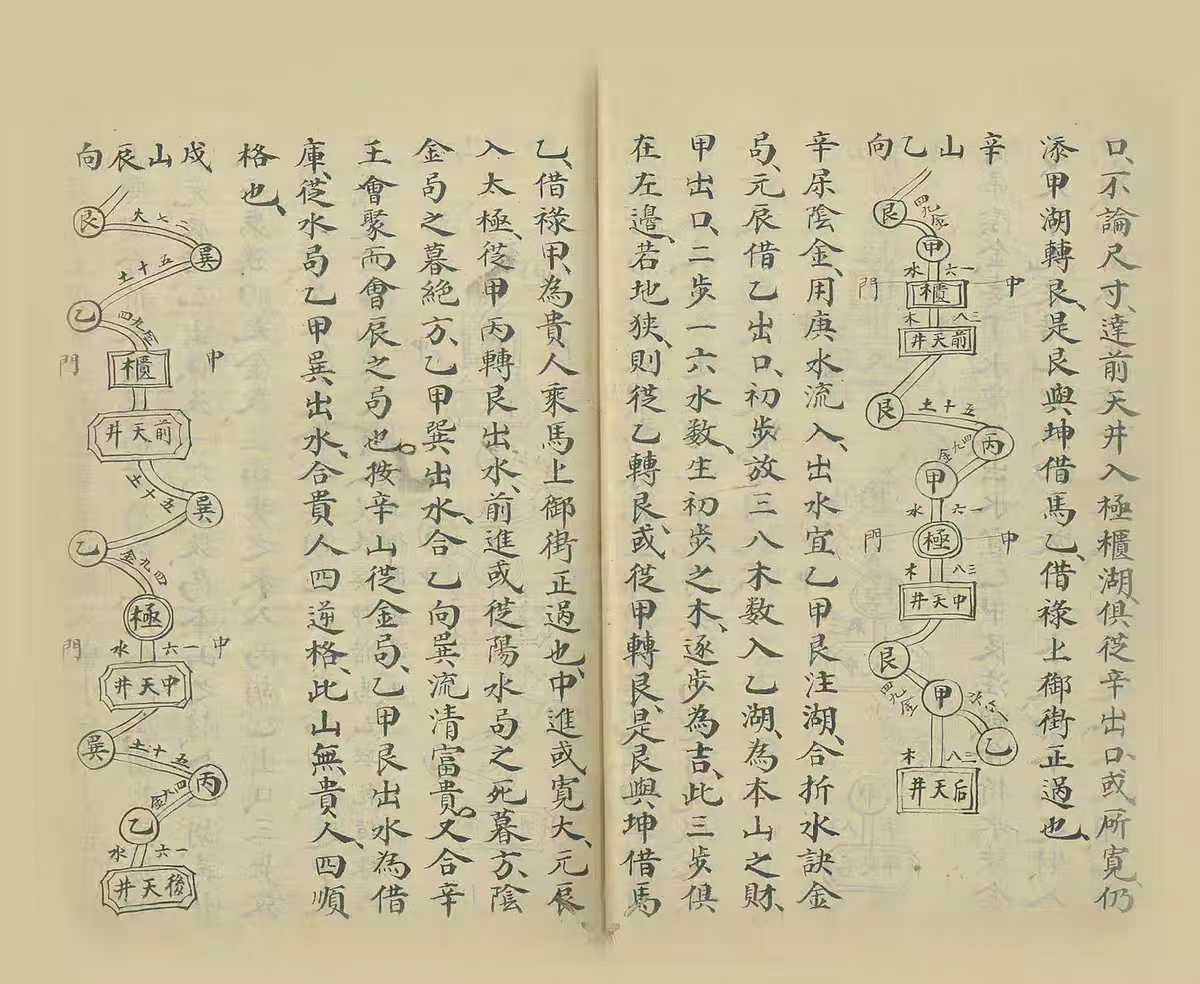 口、不論尺寸、達前天井入極櫃湖、俱從辛出口、或所寬、仍
添甲湖轉艮、是艮與坤借馬、乙、借祿上御街正過也、
辛山乙向
艮
四九金
甲
水 六一
門 櫃 中
木 三八
前天井
艮
五十土
丙
四九金
甲
水 六一
門 極 中
木 三八
中天井
艮
四九金
甲
乙
木 三八
后天井
辛尿陰金、用庚水流入、出水宜乙甲艮注湖、合折水訣金
局、元辰借乙出口、初步放三八木数入乙湖、為本山之財、
甲出口、二步一六水数、生初步之木、逐步為吉、此三步俱
在左邊、若地狹、則從乙轉艮、或從甲轉艮、是艮與坤借馬
乙、借祿甲、為貴人乘馬上御街正過也、中進或寬大、元辰
入太極、從甲丙轉艮出水、前進或從陽水局之死暮方、陰
金局之暮絕方、乙甲巽出水、合乙向巽流清富貴。又合辛
壬會聚而會辰之局也。按辛山從金局、乙甲艮出水為借
庫、從水局乙甲巽出水、合貴人四逆格、此山無貴人、四順
格也、
戌山辰向
艮
二七火
巽
五十土
乙
四九金
門 櫃 中
前天井
巽
五十土
乙
四九金
極
門 水 一六 中
中天井
巽
五十土
丙
四九金
乙
水 一六
後天井